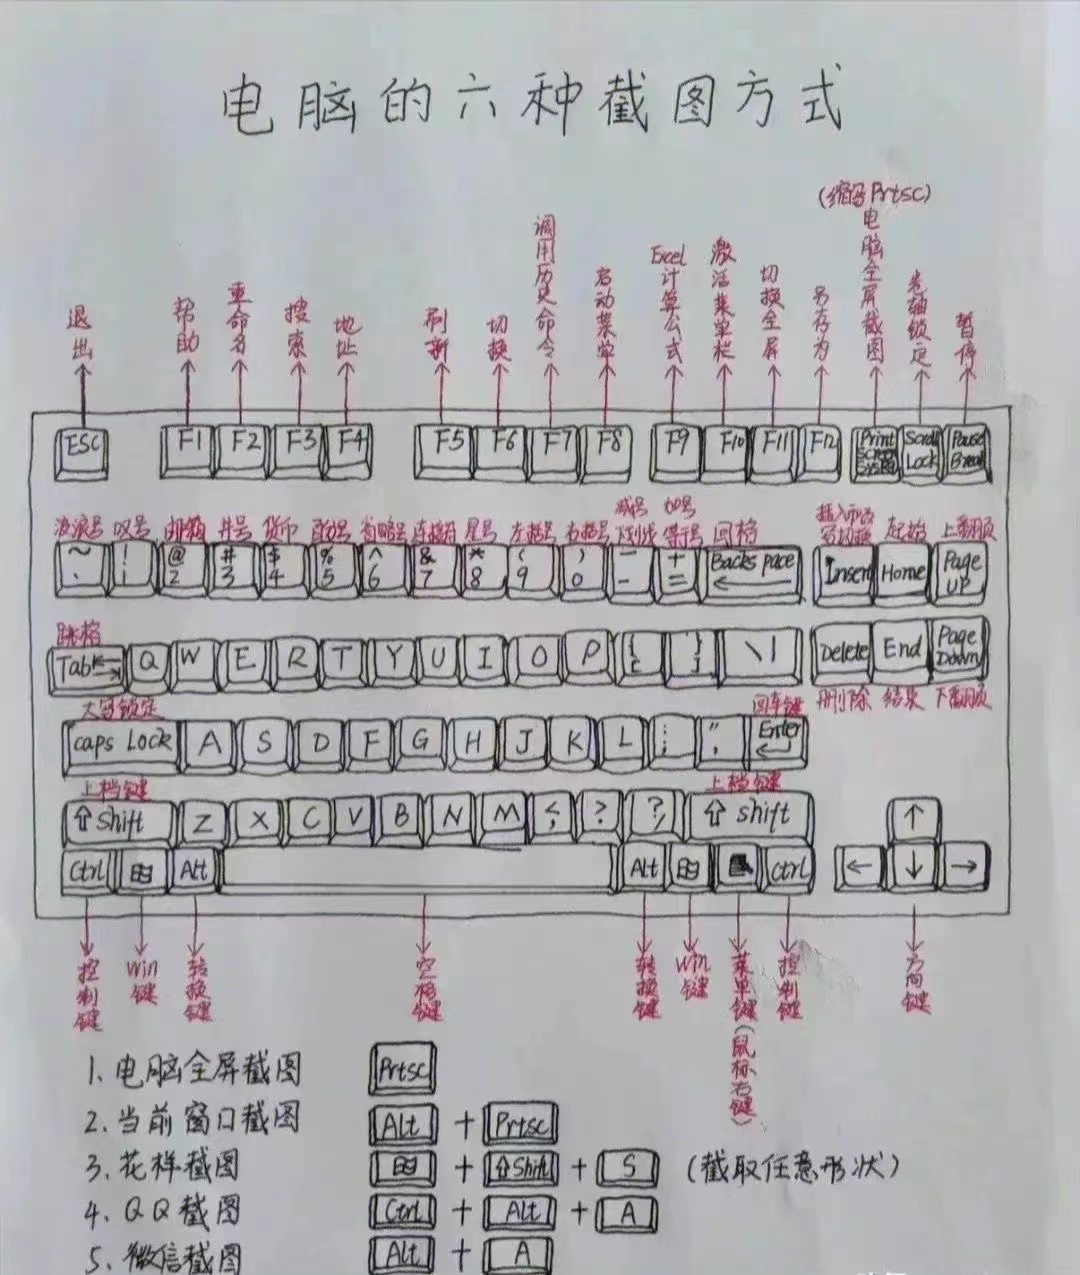 电脑的六种截图方式
(缩写Prtsc)
退出 帮助 重命名 搜索 地址 刷新 切换 调用历史命令 启动菜单 Excel计算公式 激活菜单栏 切换全屏 另存为 电脑全屏截图 先轴锁定 暂停
ESC F1 F2 F3 F4 F5 F6 F7 F8 F9 F10 F11 F12 Print Screen SysRq Scroll Lock Pause Break
波浪号 叹号 邮箱 井号 货币 百分号 省略号 连接符 星号 左括号 右括号 减号 下划线 加号 等号 回格 插入和改写切换 起始 上翻页
~ ! @ # $ % ^ & * ( ) — +
· 1 2 3 4 5 6 7 8 9 0 - = Backspace Insert Home Page UP
跳格
Tab Q W E R T Y U I O P { [ } ] \ | Delete End Page Down
大写锁定 回车键 删除 结束 下翻页
caps Lock A S D F G H J K L : ; " , Enter
上档键 上档键
⇧ shift Z X C V B N M < , > . ? / ⇧ shift ↑
Ctrl 田 Alt Alt 田 Ctrl ← ↓ →
控制键 Win键 转换键 空格键 转换键 Win键 菜单键(鼠标右键) 控制键 方向键
1、电脑全屏截图 Prtsc
2、当前窗口截图 Alt + Prtsc
3、花样截图 田 + ⇧Shift + S (截取任意形状)
4、QQ截图 Ctrl + Alt + A
5、微信截图 Alt + A